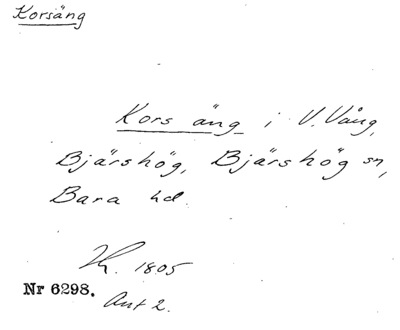 Korsäng
Kors äng i V. Vång,
Bjärshög, Bjärshög sn,
Bara hd.
1805
Nr 6298.
Akt 2.